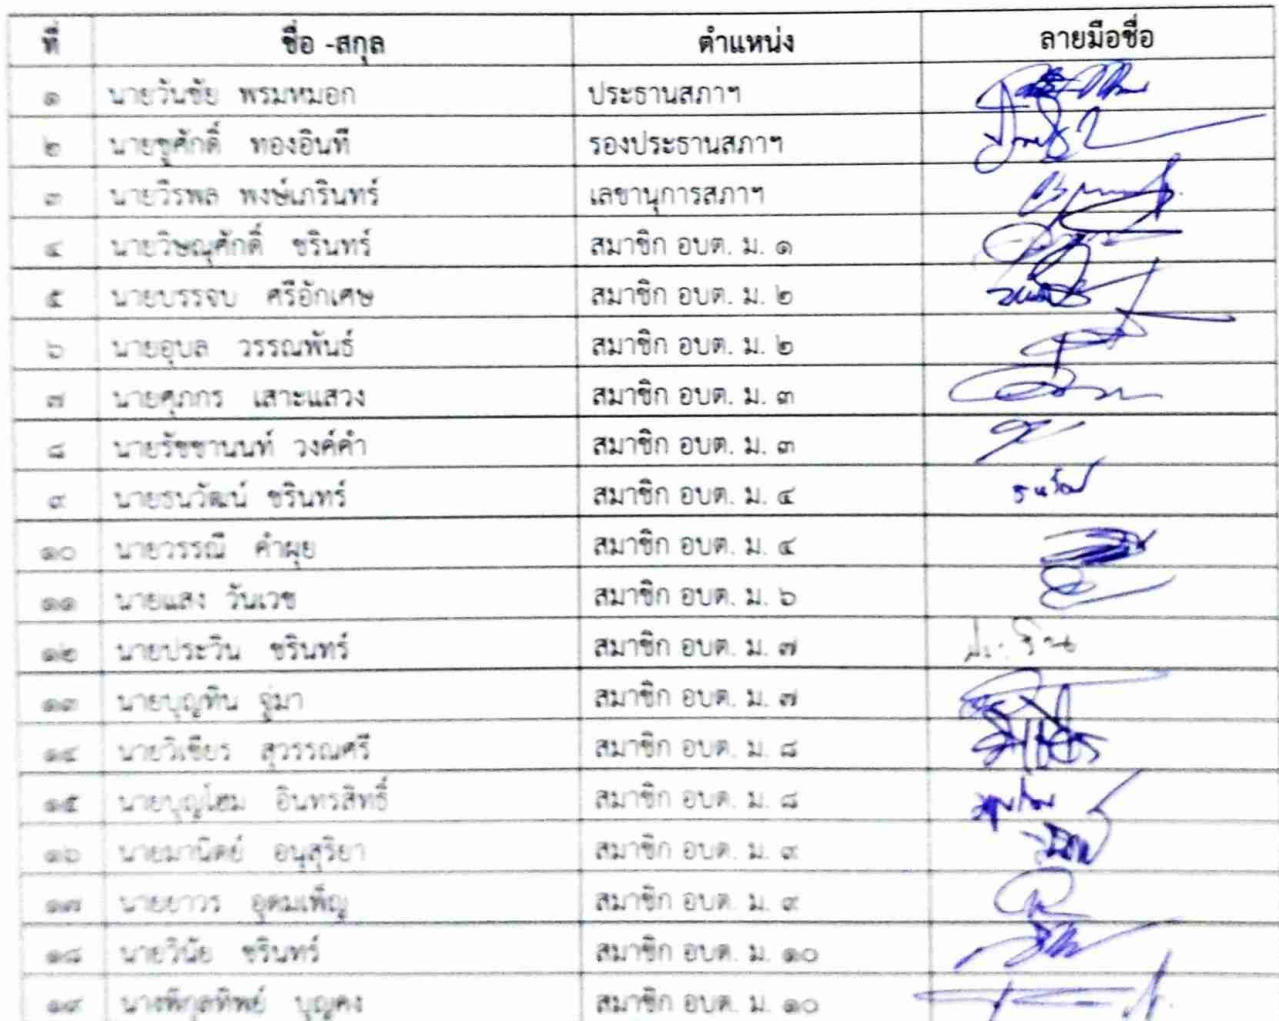 ที่ ชื่อ -สกุล ตำแหน่ง ลายมือชื่อ
๑ นายวันชัย พรมหมอก ประธานสภาฯ
๒ นายชูศักดิ์ ทองอินที รองประธานสภาฯ
๓ นายวีรพล พงษ์เกรินทร์ เลขานุการสภาฯ
๔ นายวิษณุศักดิ์ ชรินทร์ สมาชิก อบต. ม. ๑
๕ นายบรรจบ ศรีอักเศษ สมาชิก อบต. ม. ๒
๖ นายอุบล วรรณพันธ์ สมาชิก อบต. ม. ๒
๗ นายศุภกร เสาะแสวง สมาชิก อบต. ม. ๓
๘ นายรัชชานนท์ วงค์คำ สมาชิก อบต. ม. ๓
๙ นายธนวัฒน์ ชรินทร์ สมาชิก อบต. ม. ๔ ธนวัฒน์
๑๐ นายวรรณี คำผุย สมาชิก อบต. ม. ๔
๑๑ นายแสง วันเวช สมาชิก อบต. ม. ๖
๑๒ นายประวิน ชรินทร์ สมาชิก อบต. ม. ๗ ประวิน
๑๓ นายบุญทิน จูมา สมาชิก อบต. ม. ๗
๑๔ นายวิเชียร สุวรรณศรี สมาชิก อบต. ม. ๘
๑๕ นายบุญโฮม อินทรสิทธิ์ สมาชิก อบต. ม. ๘
๑๖ นายมานิตย์ อนุสุริยา สมาชิก อบต. ม. ๙
๑๗ นายยาวร อุดมเพ็ญ สมาชิก อบต. ม. ๙
๑๘ นายวินัย ชรินทร์ สมาชิก อบต. ม. ๑๐
๑๙ นางพิกุลทิพย์ บุญคง สมาชิก อบต. ม. ๑๐